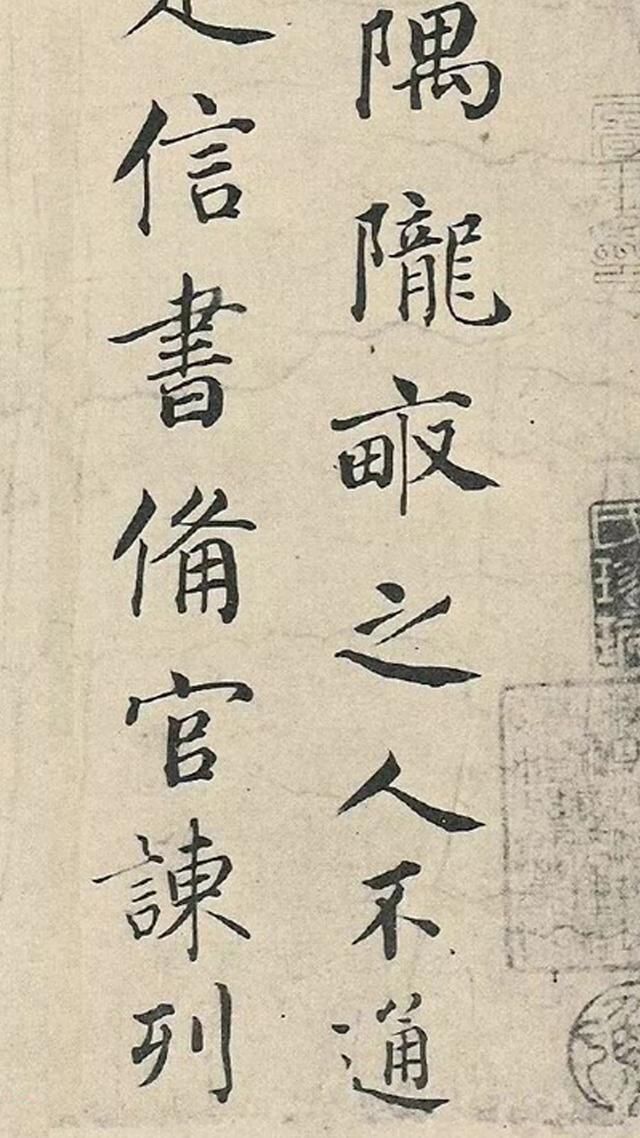 隅隴畝之人不通
信書備官諫列